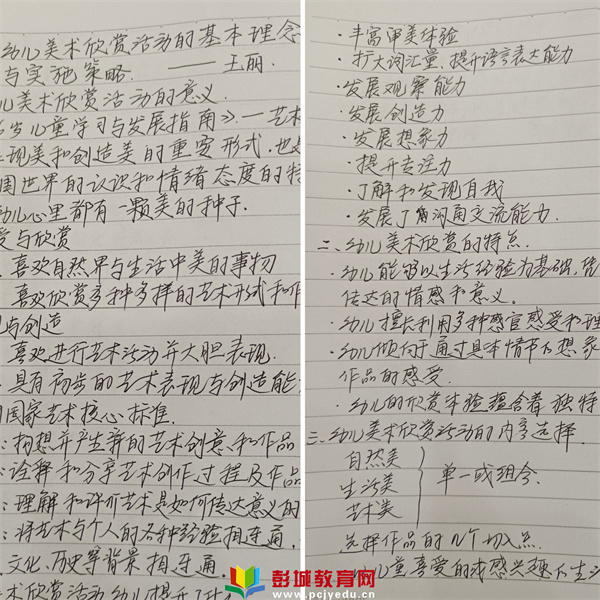 幼儿美术欣赏活动的基本理念
与实施策略. —— 王丽.
儿美术欣赏活动的意义.
岁儿童学习与发展指南》. 一艺术
现美和创造美的重要形式.也是
围世界的认识和情绪态度的特
幼儿心里都有一颗美的种子.
受与欣赏
喜欢自然界与生活中美的事物
喜欢欣赏多种多样的艺术形式和作
与创造
喜欢进行艺术活动并大胆表现.
具有初步的艺术表现与创造能
国家艺术核心标准.
:构想并产生新的艺术创意和作品
:诠释和分享艺术创作.过程及作品
:理解和评价艺术是如何传达意义的
:将艺术与个人的各种经验相连通.
文化、历史等背景相连通.
术欣赏活动幼儿
·丰富审美体验
·扩大词汇量.提升语言表达能力
·发展观察能力
·发展创造力
·发展想象力
·提升专注力
·了解和发现自我
·发展了沟通交流能力.
二.幼儿美术欣赏的特点.
·幼儿能够以生活经验为基础,凭
传达的情感和意义.
·幼儿擅长利用多种感官感受和理
·幼儿倾向于通过具体情节和想象
作品的感受.
·幼儿的欣赏体验蕴含着独特
三.幼儿美术欣赏活动的内容选择.
自然美
生活美 单一或组合.
艺术美
选择作品的几个切入点.
儿童喜爱的或感兴趣
彭城教育网
www.pcjyedu.cn